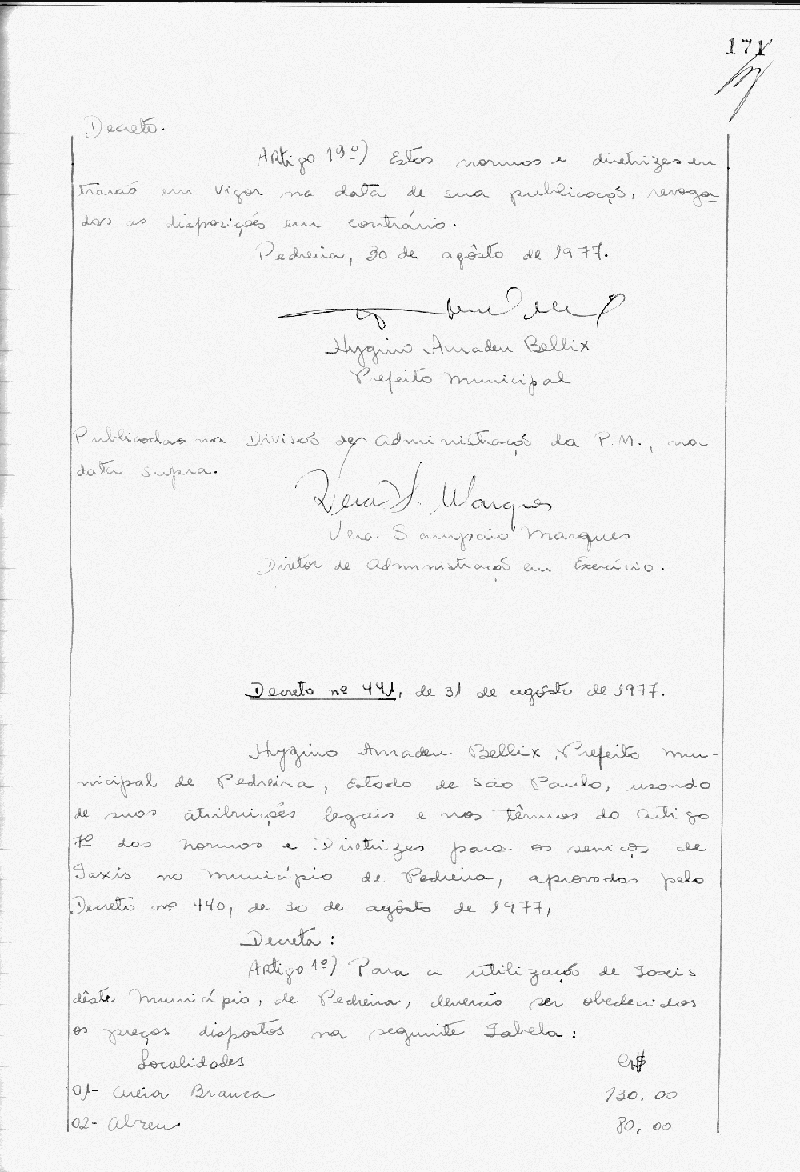 171
Decreto.
Artigo 19º) Estas normas e diretrizes en
trarão em vigor na data de sua publicação, revoga-
das as disposições em contrário.
Pedreira, 30 de agôsto de 1977.
Hygino Amadeu Bellix
Prefeito Municipal
Publicadas na Divisão de Administração da P.M., na
data supra.
Vera S. Marques
Vera Sampaio Marques
Diretor de Administração em Exercício.
Decreto nº 441, de 31 de agôsto de 1977.
Hygino Amadeu Bellix, Prefeito Mu-
nicipal de Pedreira, Estado de São Paulo, usando
de suas atribuições legais e nos têrmos do Artigo
7º das Normas e Diretrizes para os serviços de
Taxis no Município de Pedreira, aprovadas pelo
Decreto nº 440, de 30 de agôsto de 1977,
Decreta:
Artigo 1º) Para a utilização de Taxis
dêste Município, de Pedreira, deverão ser obedecidos
os preços dispostos na seguinte Tabela:
Localidades Cr$
01- Areia Branca 130,00
02- Abreu 80,00